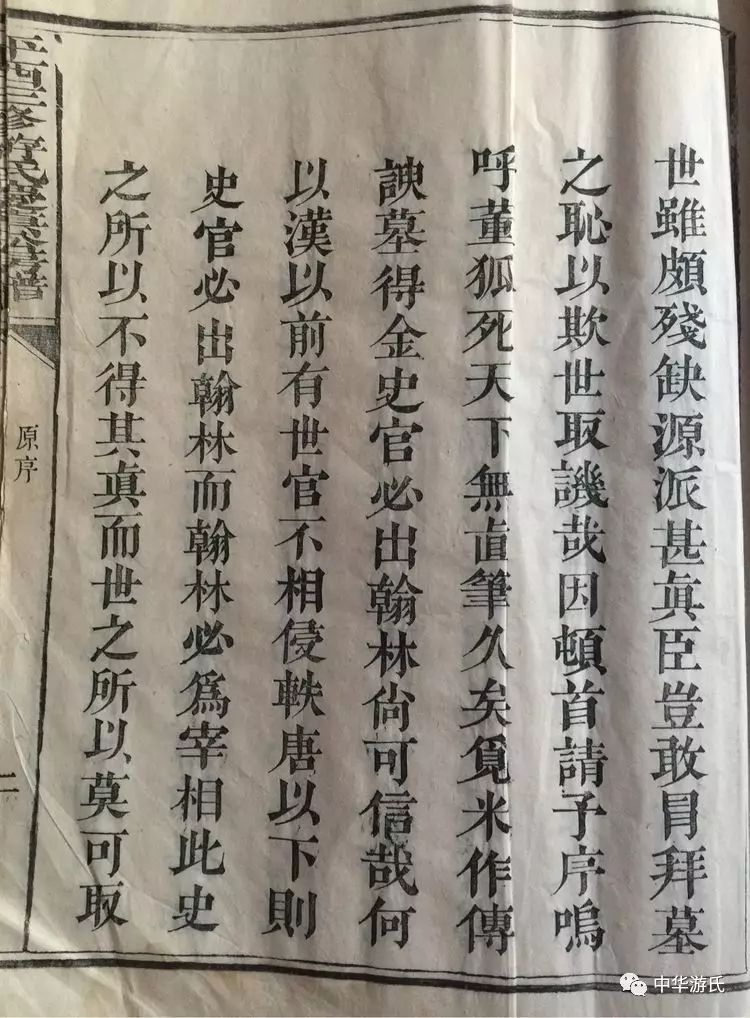 世雖頗殘缺源派甚真臣豈敢冒拜墓
之恥以欺世取譏哉因頓首請予序嗚
呼董狐死天下無直筆久矣覓米作傳
諛墓得金史官必出翰林尚可信哉何
以漢以前有世官不相侵軼唐以下則
史官必出翰林而翰林必為宰相此史
之所以不得其真而世之所以莫可取
原序
二
中华游氏